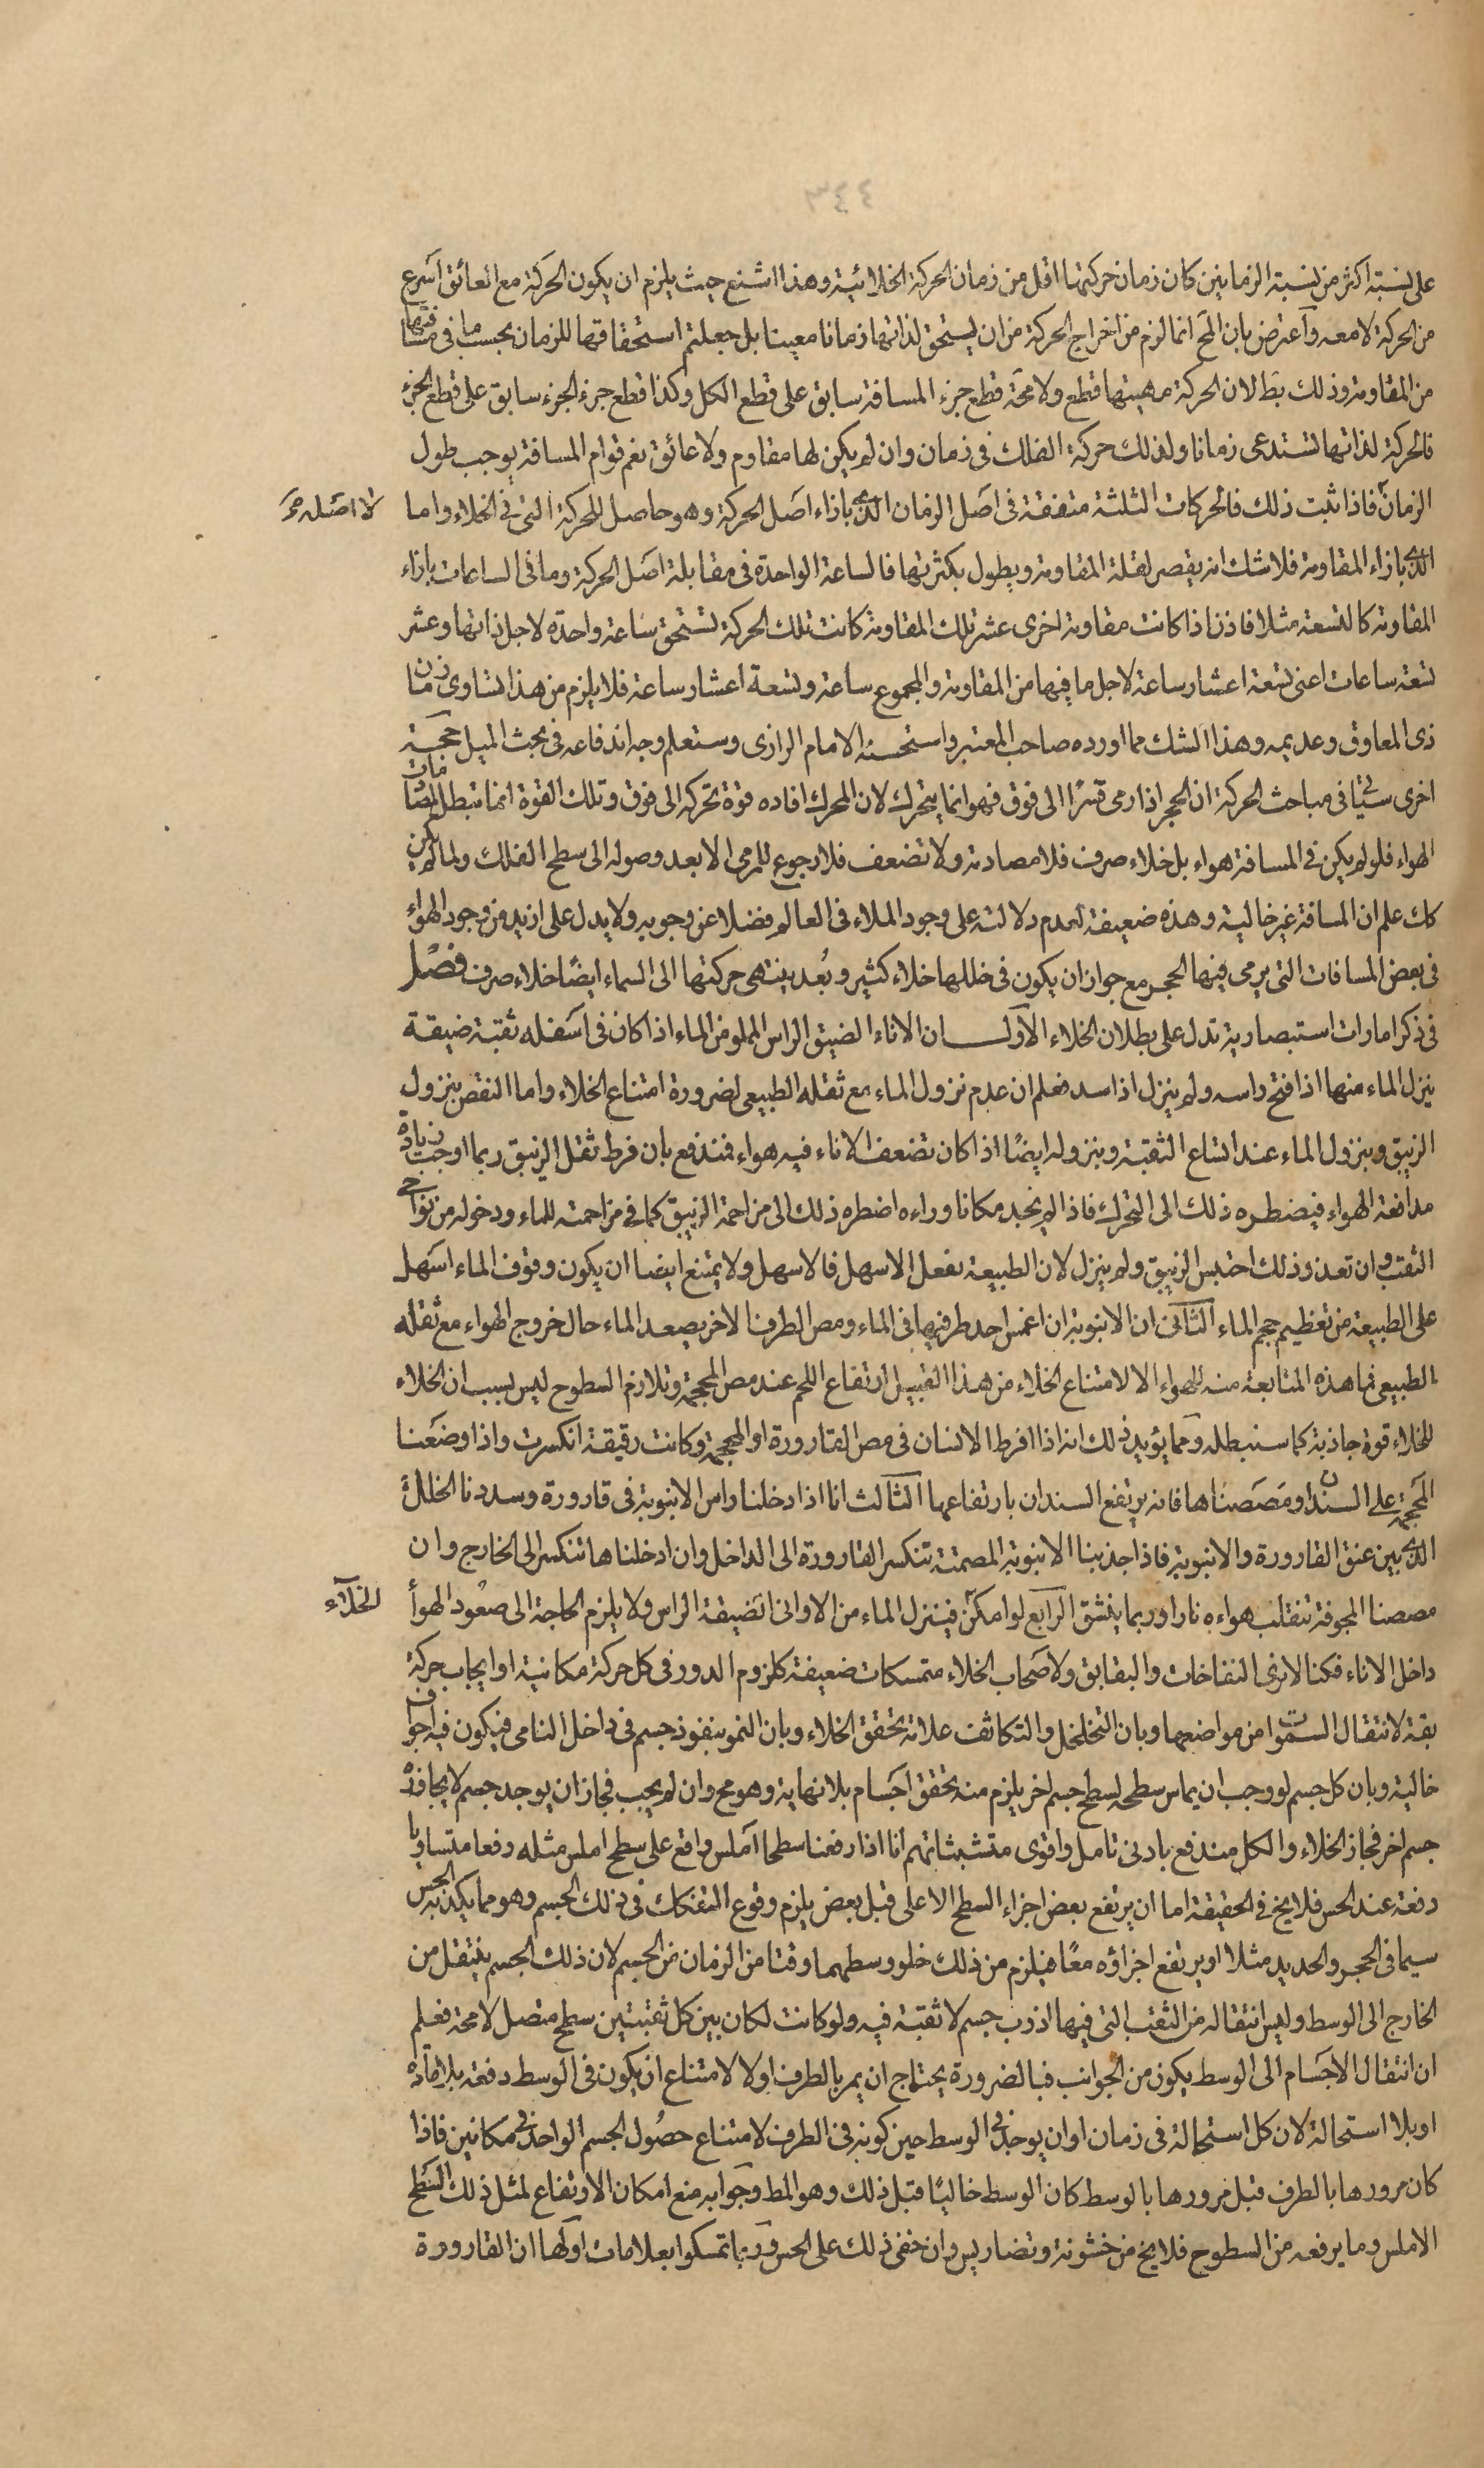 على نسبة اكثر من نسبة الزمانين كان زمان حركتها اقل من زمان الحركة الخلائية وهذا اشنع حيث يلزم ان يكون الحركة مع العائق اسرع
من الحركة لا معه واعترض بان المح انما لزم من اخراج الحركة من ان يستحق لذاتها زمانا معينا بل جعلتم استحقاقها للزمان بحسب ما في مسافتها
من المقاومة وذلك بط لان الحركة مهيتها قطع ولا محة قطع جزء المسافة سابق على قطع الكل وكذا قطع جزء الجزء سابق على قطع الجزء
فالحركة لذاتها تستدعى زمانا ولذلك حركة الفلك فى زمان وان لم يكن لها مقاوم ولا عائق نعم قوام المسافة يوجب طول
الزمان فاذا ثبت ذلك فالحركات الثلثة متفقة فى اصل الزمان الذى بازاء اصل الحركة وهو حاصل للحركة التى فى الخلاء واما
لا اصله
الذى بازاء المقاومة فلا شك انه يقصر لقلة المقاومة ويطول بكثرتها فالساعة الواحدة فى مقابلة اصل الحركة وما فى الساعات بازاء
المقاومة كالتسعة مثلا فاذن اذا كانت مقاومة اخرى عشر تلك المقاومة كانت تلك الحركة تستحق ساعة واحدة لاجل ذاتها وعشر
تسعة ساعات اعنى تسعة اعشار ساعة لاجل ما فيها من المقاومة والمجموع ساعة وتسعة اعشار ساعة فلا يلزم من هذا تساوى زمان
ذى المعاوق وعديمه وهذا الشك مما اورده صاحب المعتبر واستحسنه الامام الرازى وستعلم وجه اندفاعه فى بحث الميل حجة
اخرى ستاتى فى مباحث الحركة ان الحجر اذا رمى قسرا الى فوق فهو انما يتحرك لان المحرك افاده قوة تحركه الى فوق وتلك القوة انما تبطل بمصادمات
الهواء فلو لم يكن فى المسافة هواء بل خلاء صرف فلا مصادمة ولا تضعف فلا رجوع للرمى الا بعد وصوله الى سطح الفلك ولما لم يكن
كك علم ان المسافة غير خالية وهذه ضعيفة لعدم دلالته على وجود الملاء فى العالم فضلا عن وجوبه ولا يدل على ازيد من وجود الهواء
فى بعض المسافات التى يرمى فيها الحجر مع جواز ان يكون فى خللها خلاء كثير وبعد ينتهى حركتها الى السماء ايضا خلاء صرف فصل
فى ذكر امارات استبصارية تدل على بطلان الخلاء الاول ان الاناء الضيق الراس المملو من الماء اذا كان فى اسفله ثقبة ضيقة
ينزل الماء منها اذا فتح راسه ولم ينزل اذا سد فعلم ان عدم نزول الماء مع ثقله الطبيعى لضرورة امتناع الخلاء واما النقض بنزول
الزيبق وبنزول الماء عند اتساع الثقبة وبنزوله ايضا اذا كان تضعف الاناء فيه هواء فندفع بان فرط ثقل الزيبق ربما اوجب زيادة
مدافعة الهواء فيضطره ذلك الى التحرك فاذا لم يجد مكانا وراءه اضطره ذلك الى مزاحمة الزيبق كما فى مزاحمته للماء ودخوله من نواحى
الثقب وان تعذر ذلك احتبس الزيبق ولم ينزل لان الطبيعة تفعل الاسهل فالاسهل ولا يمتنع ايضا ان يكون وقوف الماء اسهل
على الطبيعة من تعظيم حجم الماء الثانى ان الانبوبة ان اغمس احد طرفيها فى الماء ومص الطرف الاخر يصعد الماء حال خروج الهواء مع ثقله
الطبيعى فما هذه المتابعة منه للهواء الا لامتناع الخلاء من هذا القبيل ارتفاع اللحم عند مص المحجمة وتلازم السطوح ليس بسبب ان الخلاء
للخلاء قوة جاذبة كما سنبطله ومما يؤيد ذلك انه اذا افرط الانسان فى مص القارورة او المحجمة وكانت رقيقة انكسرت واذا وضعنا
المحجمة على السندان ومصصناها فانه يرتفع السندان بارتفاعها الثالث انا اذا ادخلنا راس الانبوبة فى قارورة وسددنا الخلل
الذى بين عنق القارورة والانبوبة فاذا جذبنا الانبوبة المصمتة تنكسر القارورة الى الداخل وان ادخلناها تنكسر الى الخارج وان
مصصنا المجوفة تنقلب هواءه نارا وربما ينشق الرابع لو امكن فينزل الماء من الاوانى الضيقة الراس ولا يلزم الحاجة الى صعود الهواء
الخلاء
داخل الاناء فكنا لا نرى النفاخات والبقابق ولاصحاب الخلاء متمسكات ضعيفة كلزوم الدور فى كل حركة مكانية او ايجاب حركة
بقة لانتقال السموات من مواضعها وبان التخلخل والتكاثف علامة تحقق الخلاء وبان النمو ينفوذ جسم فى داخل النامى فيكون فيه اجواف
خالية وبان كل جسم لو وجب ان يماس سطحه لسطح جسم اخر يلزم منه تحقق اجسام بلا نهاية وهو مح وان لم يجب فجاز ان يوجد جسم لا يجاوزه
جسم اخر فجاز الخلاء والكل مندفع بادنى تامل واقوى متشبثاتهم انا اذا رفعنا سطحا املس واقع على سطح املس مثله رفعا متساويا
دفعة عند الحس فلا يخ فى الحقيقة اما ان يرتفع بعض اجزاء السطح الاعلى قبل بعض يلزم وقوع التفكك فى ذلك الجسم وهو مما يكذبه الحس
سيما فى الحجر والحديد مثلا او يرتفع اجزاؤه معا فيلزم من ذلك خلو وسطهما وقتا من الزمان من الجسم لان ذلك الجسم ينتقل من
الخارج الى الوسط وليس انتقاله من الثقب التى فيها اذ رب جسم لا ثقبة فيه ولو كانت لكان بين كل ثقبتين سطح متصل لا محة فعلم
ان انتقال الاجسام الى الوسط يكون من الجوانب فبالضرورة يحتاج ان يمر بالطرف اولا لامتناع ان يكون فى الوسط دفعة بلا مادة
او بلا استحالة لان كل استحالة فى زمان او ان يوجد فى الوسط حين كونه فى الطرف لامتناع حصول الجسم الواحد فى مكانين فاذا
كان مرورها بالطرف قبل مرورها بالوسط كان الوسط خاليا قبل ذلك وهو المط وجوابه منع امكان الارتفاع لمثل ذلك السطح
الاملس وما يرفعه من السطوح فلا يخ من خشونة وتضاريس وان خفى ذلك على الحس وربما تمسكوا بعلامات اولها ان القارورة